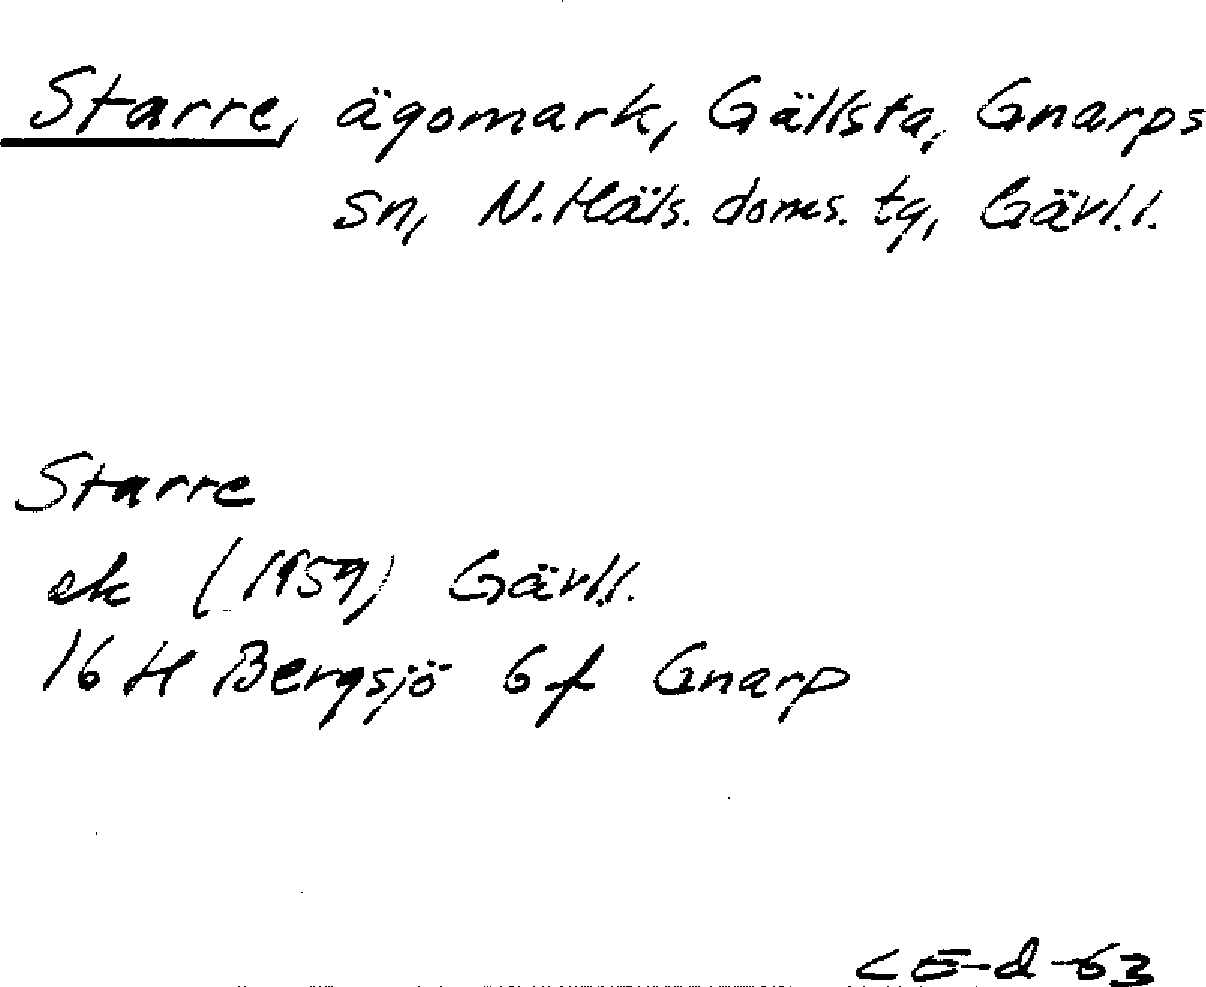 Starre, ägomark, Gällsta, Gnarps
sn, N. Häls. doms. tg, Gävl.l.
Starre
ek (1959) Gävl.l.
16 H Bergsjö 6 f Gnarp
CE-d-63